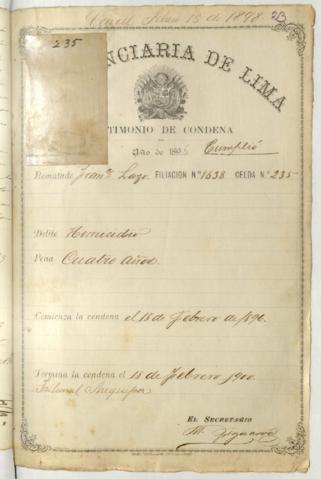 Concl. Febro 15 de 1898.
235
NCIARIA DE LIMA
TIMONIO DE CONDENA
Año de 1896 Cumplió
Rematado Juan Lazo FILIACION N.º 1638 CELDA N.º 235
Delito Homicidio
Pena Cuatro años.
Comienza la condena el 18 de Febrero de 1896.
Termina la condena el 18 de Febrero 1900.
Tribunal Arequipa
EL SECRETARIO
M. Figueroa